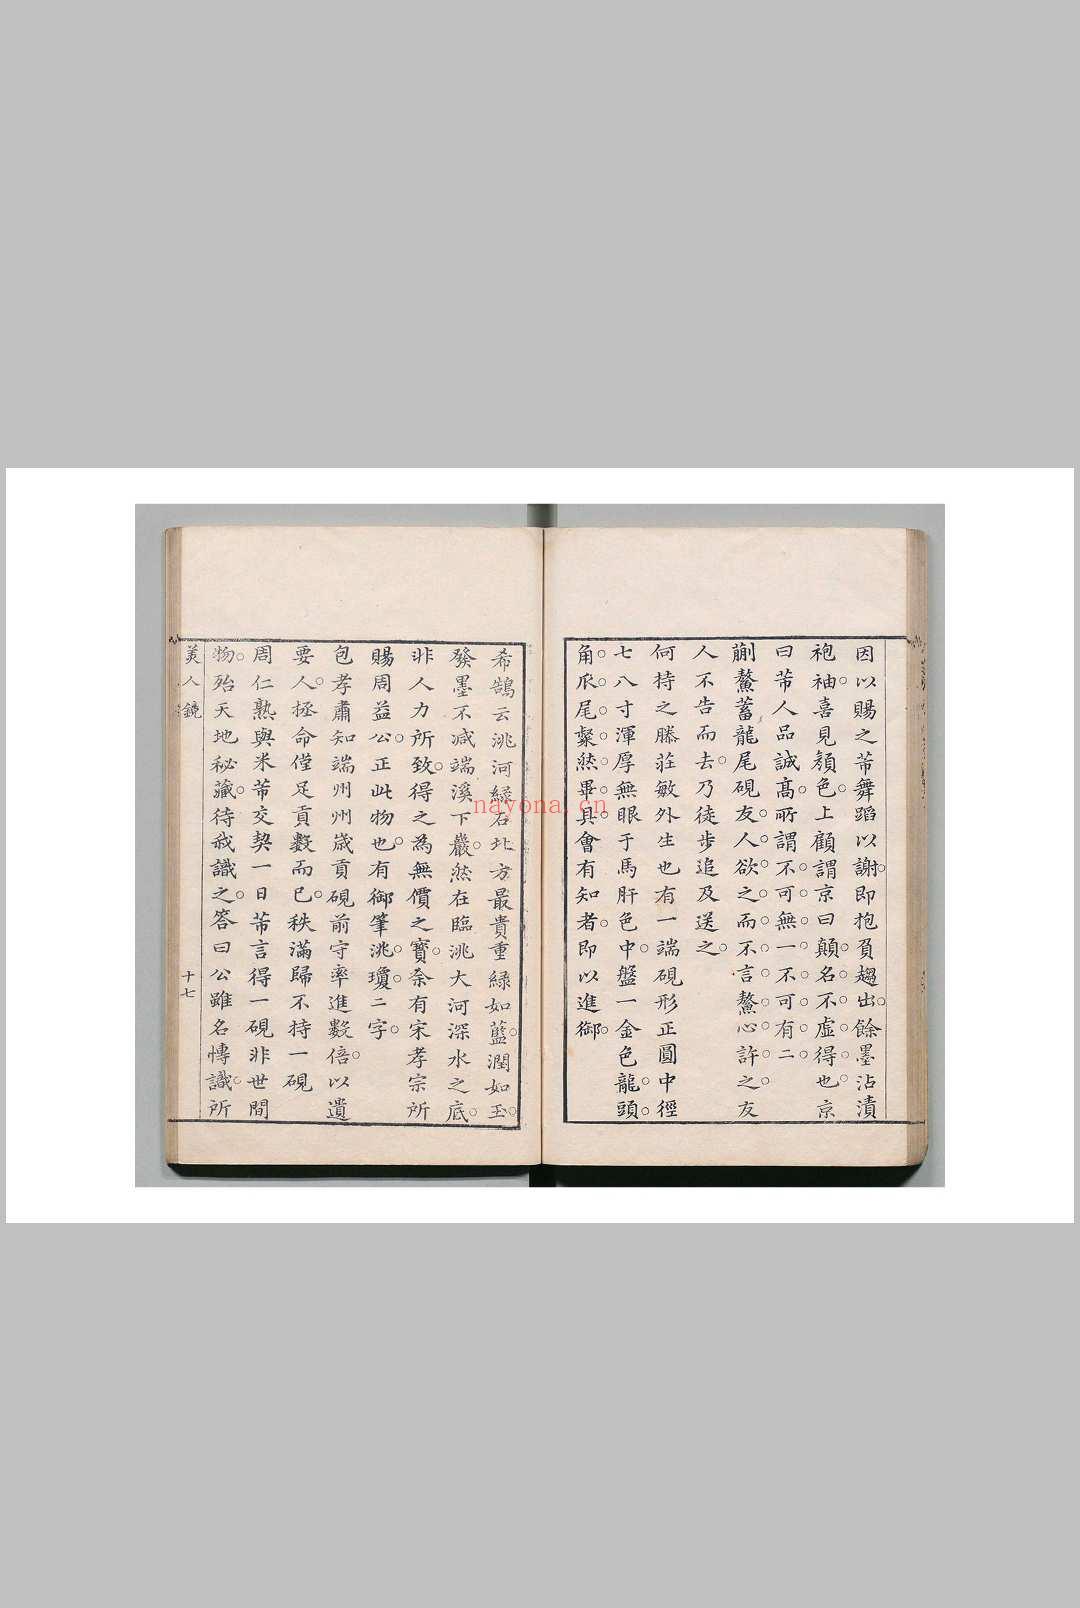 因以賜之芾舞蹈以謝即抱負趨出餘墨沾漬
袍袖喜見顏色上顧謂京曰顛名不虛得也京
曰芾人品誠高所謂不可無一不可有二
蒯鰲蓄龍尾硯友人欲之而不言鰲心許之友
人不告而去乃徒步追及送之
何持之滕莊敏外生也有一端硯形正圓中徑
七八寸渾厚無眼于馬肝色中盤一金色龍頭
角爪尾粲然畢具會有知者即以進御
希鵠云洮河綠石北方最貴重綠如藍潤如玉
發墨不减端溪下巖然在臨洮大河深水之底
非人力所致得之為無價之寶奈有宋孝宗所
賜周益公正此物也有御筆洮瓊二字
包孝肅知端州州歲貢硯前守率進數倍以遺
要人拯命僅足貢數而已秩滿歸不持一硯
周仁熟與米芾交契一日芾言得一硯非世間
物殆天地秘藏待我識之答曰公雖名愽識所
美人鏡
十七
nayona.cn